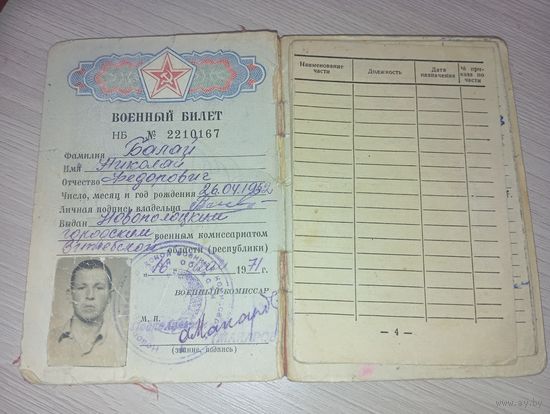 ВОЕННЫЙ БИЛЕТ
НБ № 2210167
Фамилия
Имя Николай
Отчество Федорович
Число, месяц и год рождения 26.04.19
Личная подпись владельца
Выдан Новополоцким
городским военным комиссариатом
Витебской области (республики)
„16 1971 г.
ВОЕННЫЙ КОМИССАР
М. П.
(звание, подпись)
Наименование части
Должность
Дата назначения
№ приказа по части
— 4 —
www.ay.by